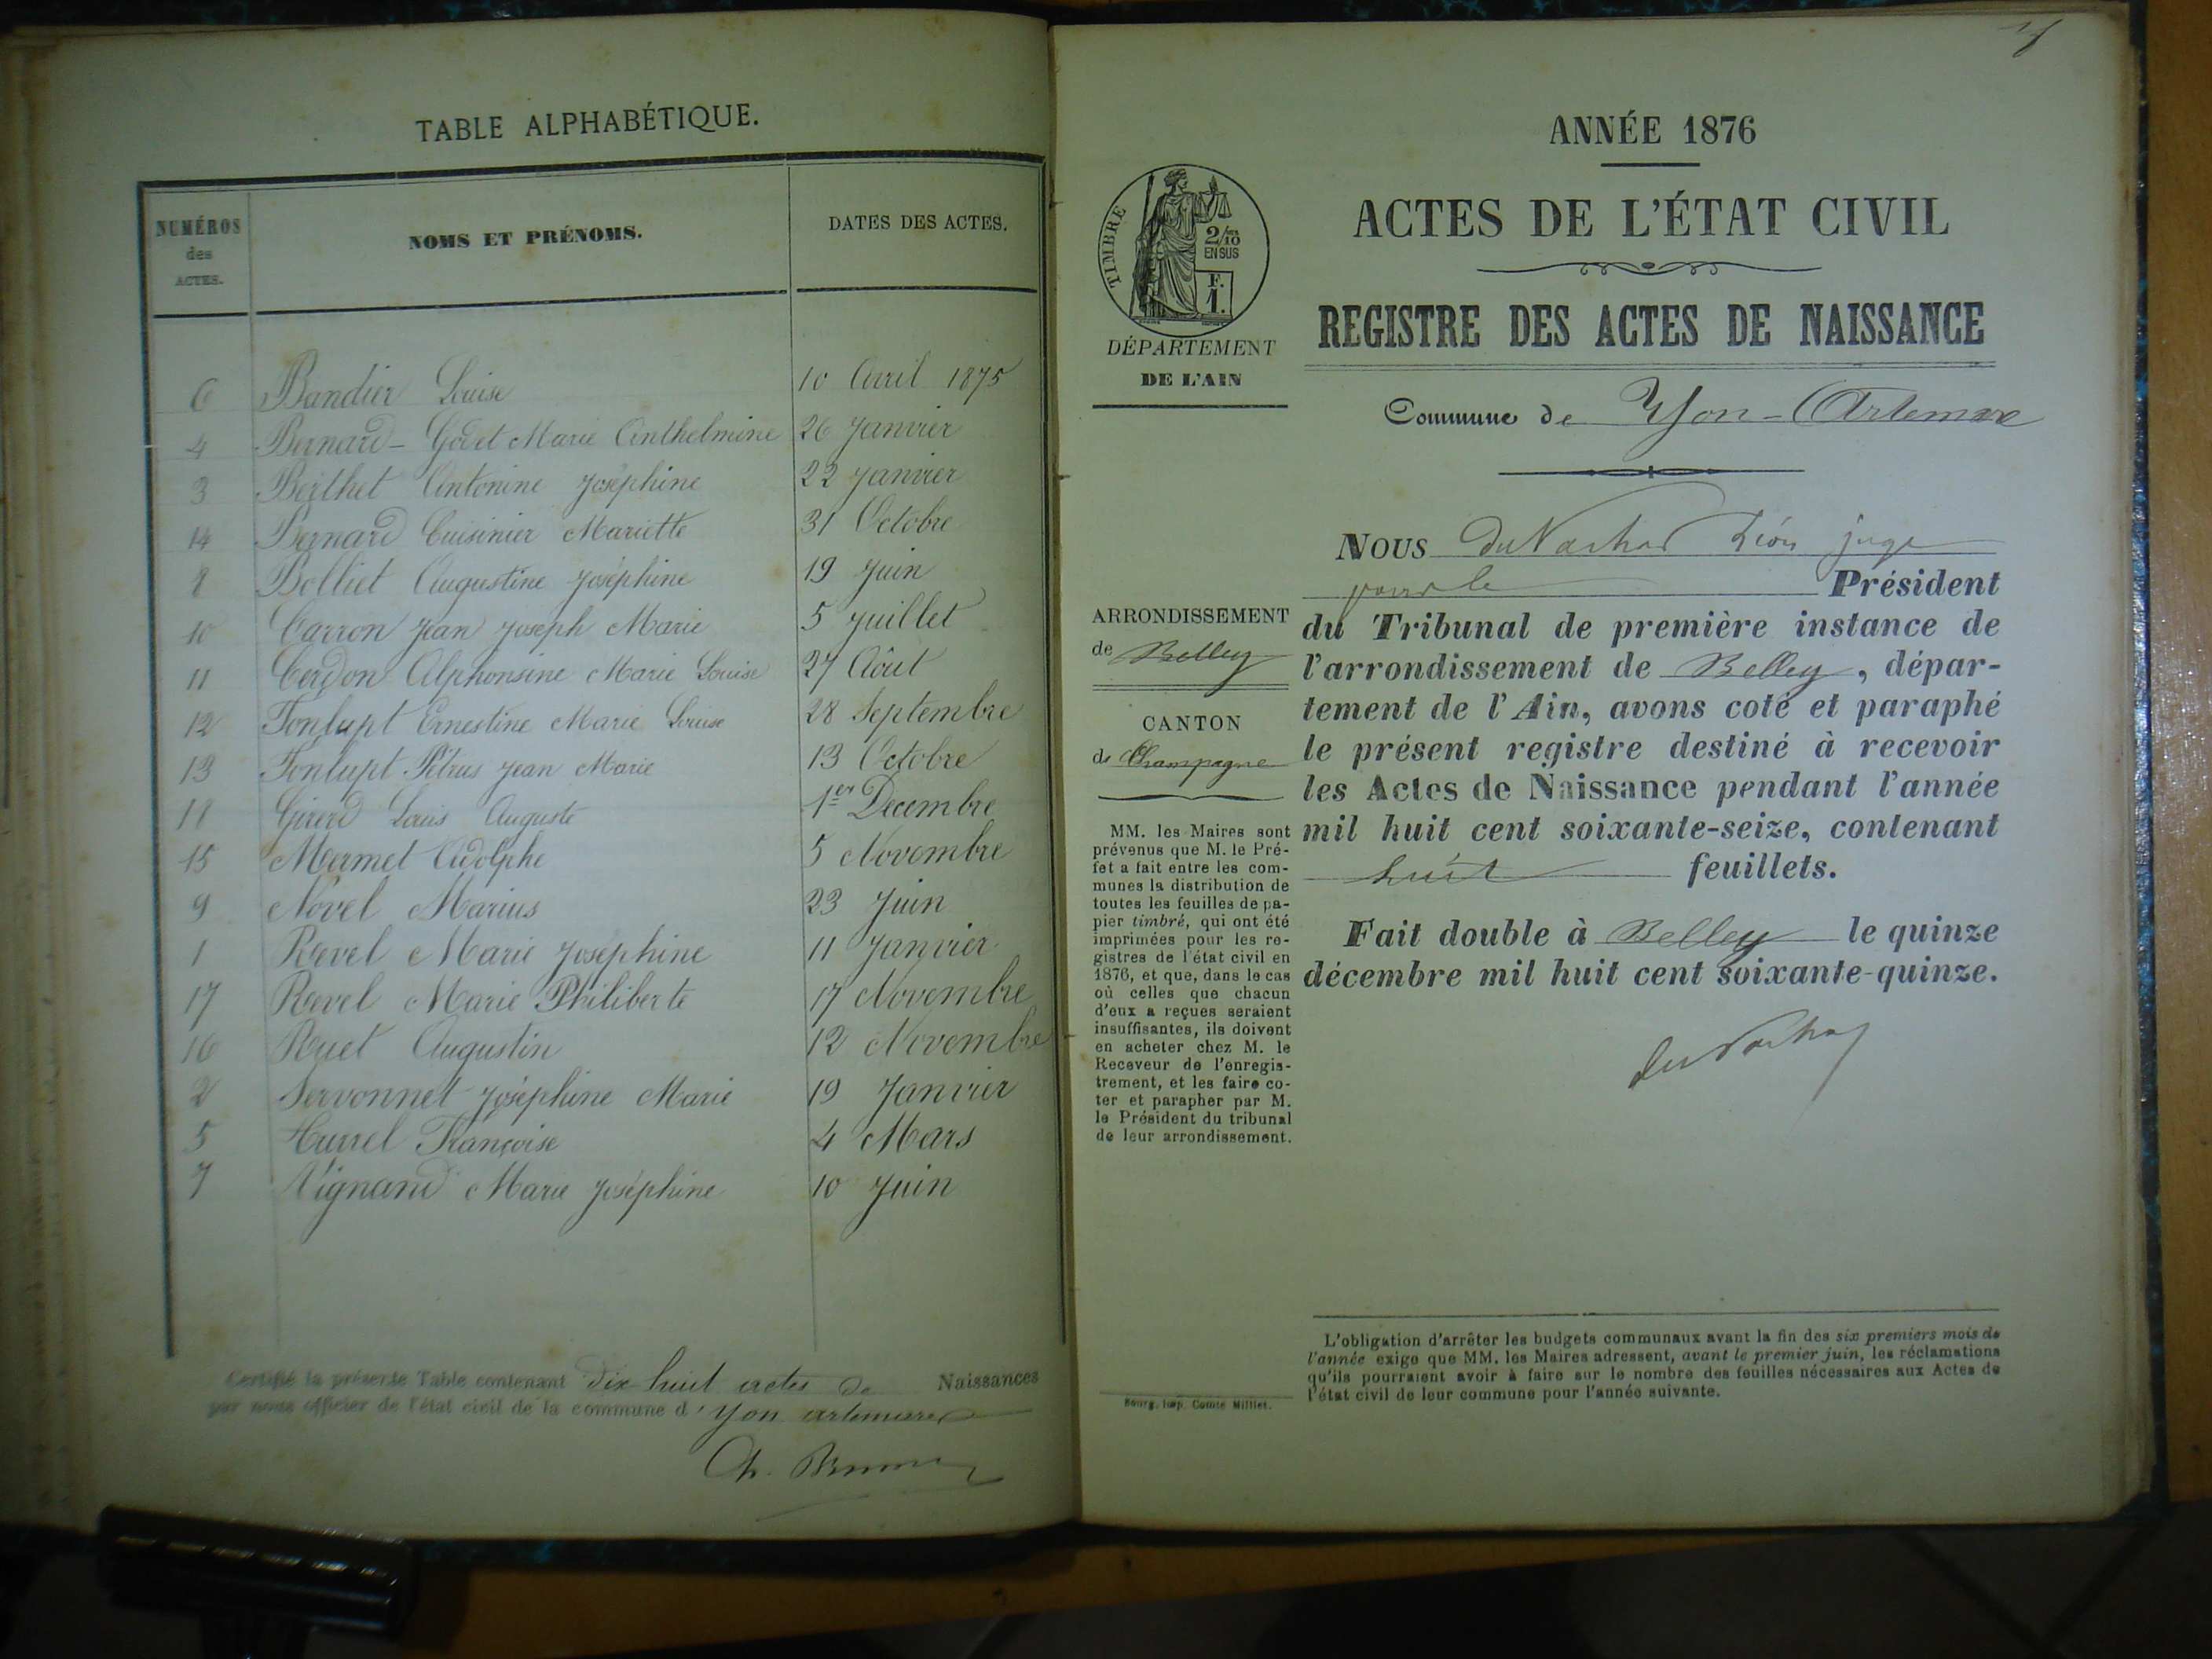 TABLE ALPHABÉTIQUE.
NUMÉROS des ACTES. NOMS ET PRÉNOMS. DATES DES ACTES.
6 Bandier Louise 10 Avril 1875
4 Bernard-Godet Marie Anthelmine 26 Janvier
3 Berthet Antonine Joséphine 22 Janvier
14 Bernard Cuisinier Mariette 31 Octobre
8 Bolliet Augustine Joséphine 19 Juin
10 Carron Jean Joseph Marie 5 Juillet
11 Cerdon Alphonsine Marie Louise 27 Août
12 Fontupt Ernestine Marie Louise 28 Septembre
13 Fontupt Pétrus Jean Marie 13 Octobre
18 Girerd Louis Auguste 1er Decembre
15 Mermet Adolphe 5 Novembre
9 Novel Marius 23 Juin
1 Revel Marie Joséphine 11 Janvier
17 Revel Marie Philiberte 17 Novembre
16 Ruet Augustin 12 Novembre
2 Servonnet Joséphine Marie 19 Janvier
5 Françoise 4 Mars
7 Vignand Marie Joséphine 10 Juin
Certifié la présente Table contenant dix huit actes de Naissances
par nous officier de l'état civil de la commune d'Yon artemare
Ch.
ANNÉE 1876
ACTES DE L'ÉTAT CIVIL
REGISTRE DES ACTES DE NAISSANCE
Commune de Yon-Artemare
TIMBRE
2/10
EN SUS
F.
1.
DÉPARTEMENT
DE L'AIN
ARRONDISSEMENT
de Belley
CANTON
de Champagne
MM. les Maires sont
prévenus que M. le Pré-
fet a fait entre les com-
munes la distribution de
toutes les feuilles de pa-
pier timbré, qui ont été
imprimées pour les re-
gistres de l'état civil en
1876, et que, dans le cas
où celles que chacun
d'eux a reçues seraient
insuffisantes, ils doivent
en acheter chez M. le
Receveur de l'enregis-
trement, et les faire co-
ter et parapher par M.
le Président du tribunal
de leur arrondissement.
Bourg, imp. Comte Milliet.
Nous Léon juge
pour le Président
du Tribunal de première instance de
l'arrondissement de Belley, dépar-
tement de l'Ain, avons coté et paraphé
le présent registre destiné à recevoir
les Actes de Naissance pendant l'année
mil huit cent soixante-seize, contenant
huit feuillets.
Fait double à Belley le quinze
décembre mil huit cent soixante-quinze.
L'obligation d'arrêter les budgets communaux avant la fin des six premiers mois de
l'année exige que MM. les Maires adressent, avant le premier juin, les réclamations
qu'ils pourraient avoir à faire sur le nombre des feuilles nécessaires aux Actes de
l'état civil de leur commune pour l'année suivante.